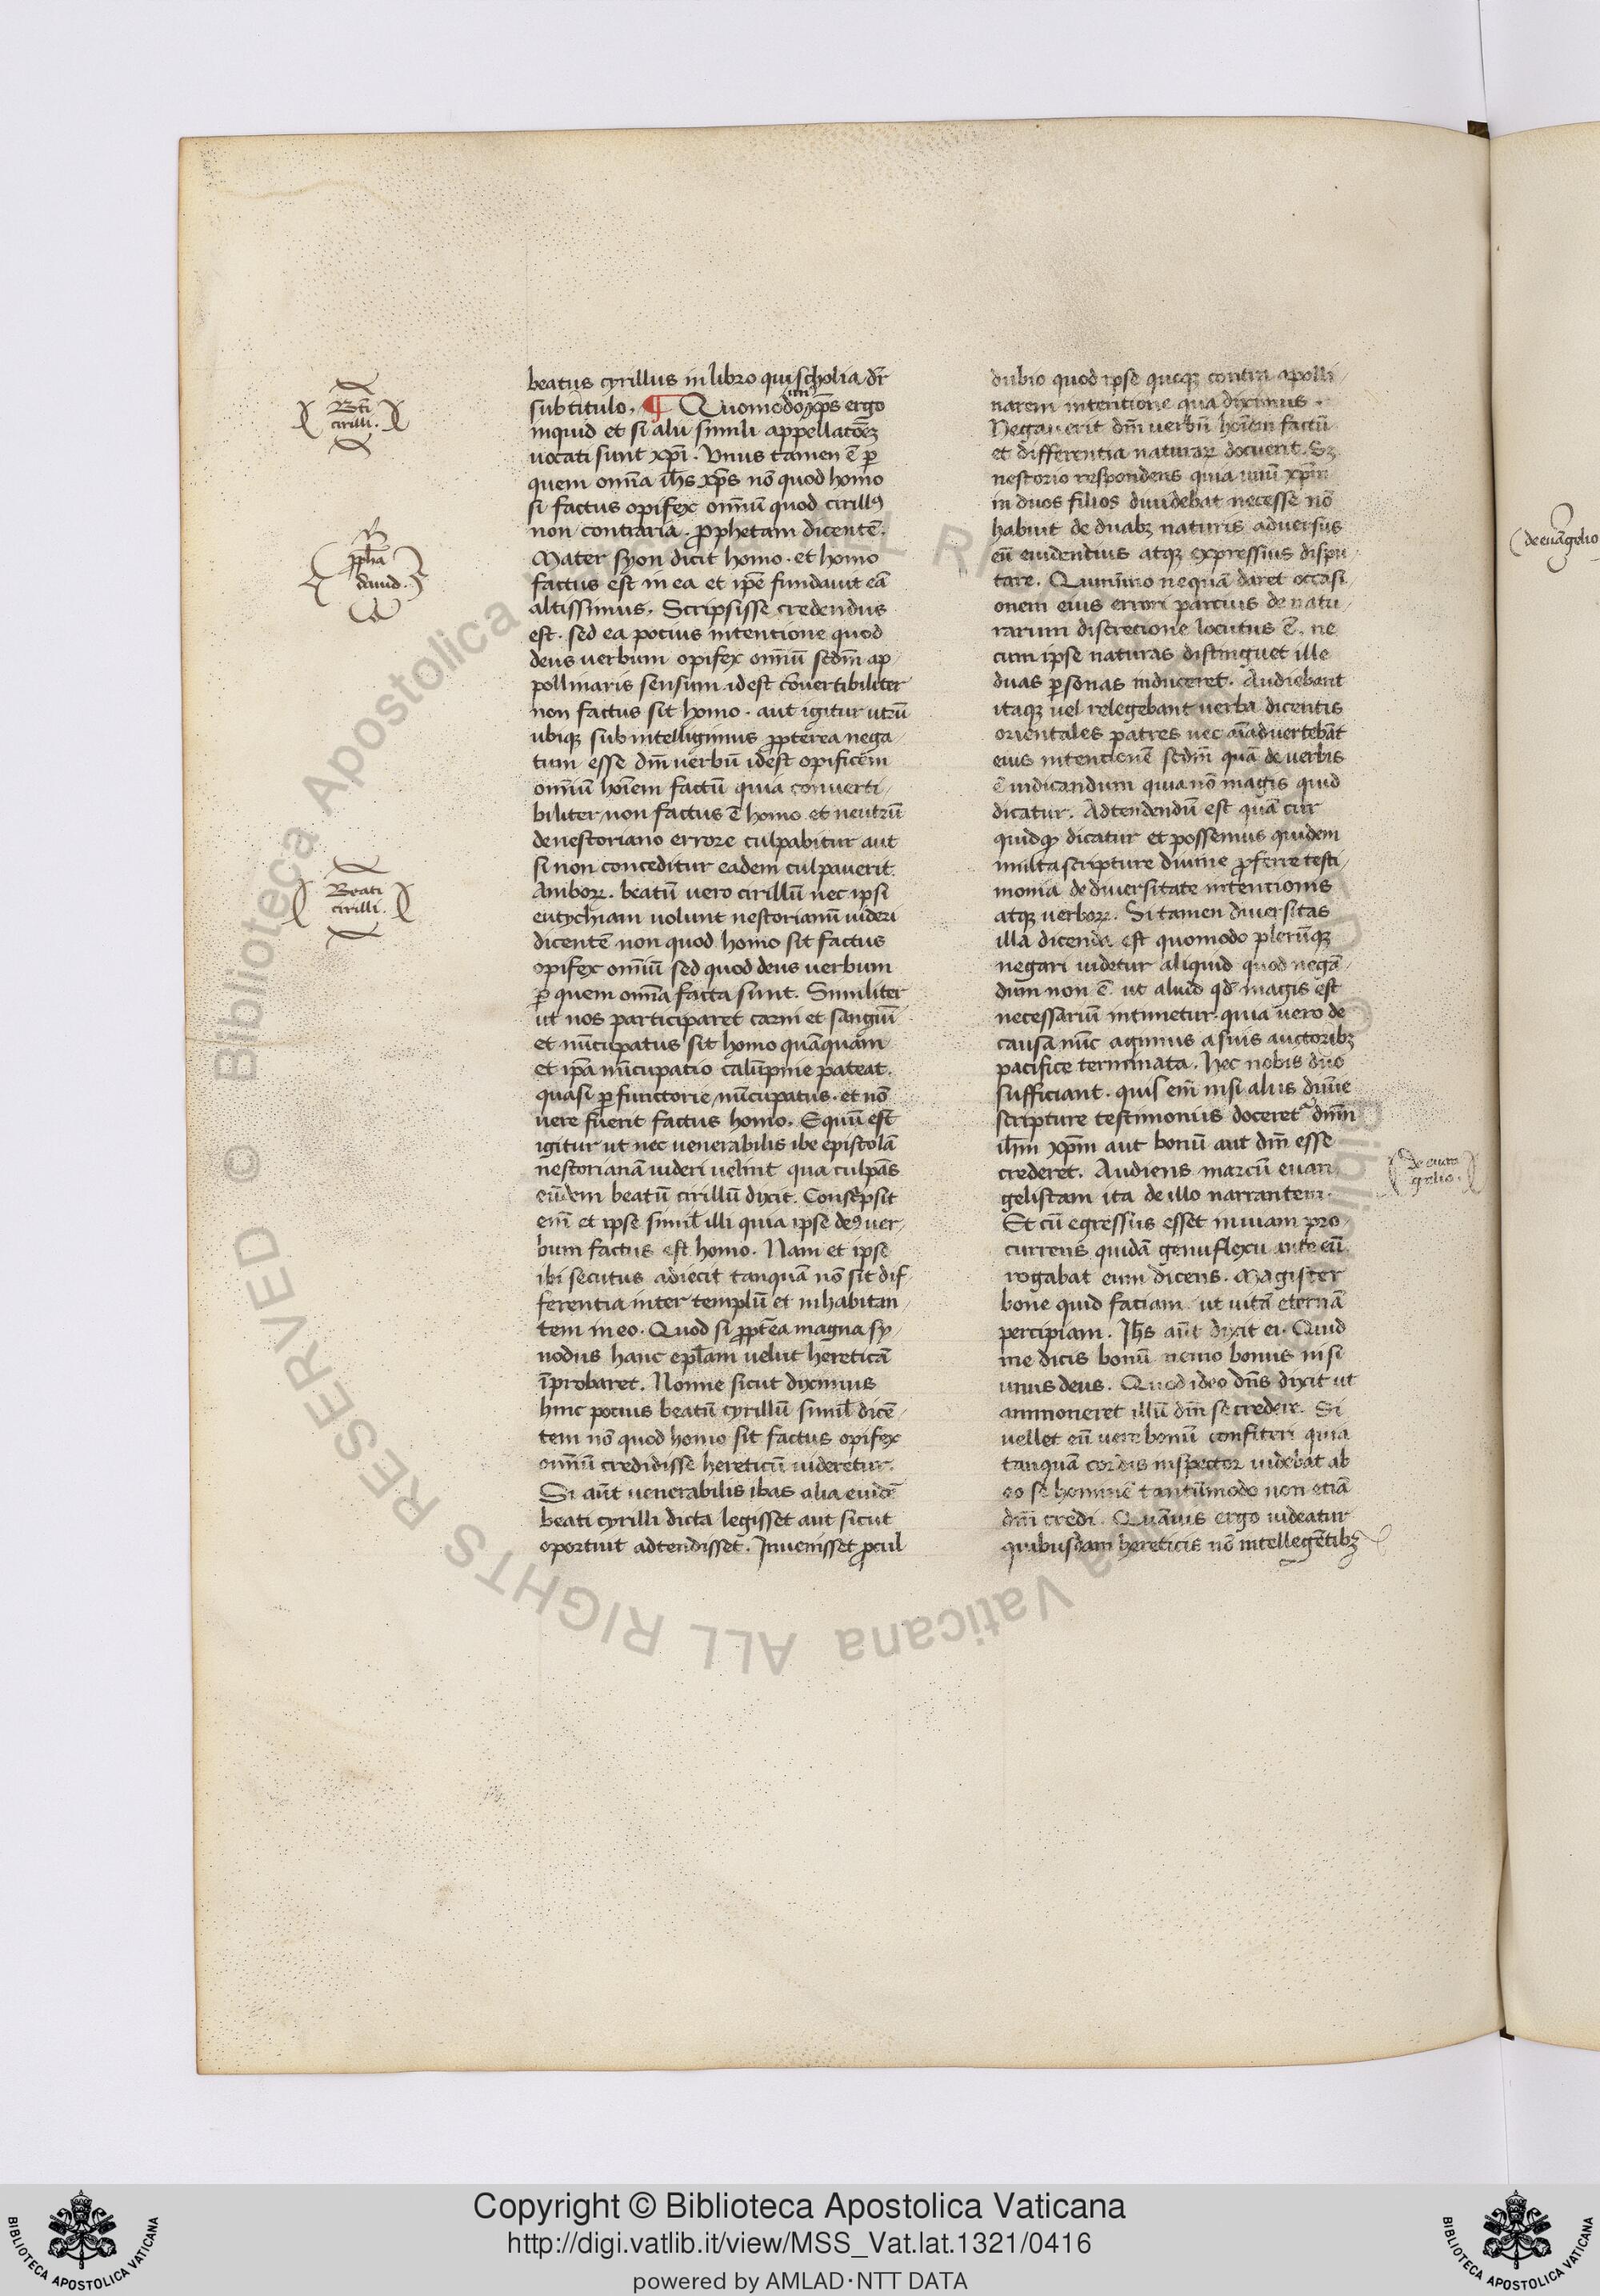 beatus cyrillus in libro qui scholia dr̄
sub titulo. ¶ Quomodo unꝰ xp̄s ergo
inquid et si alii simili appellatōeꝫ
uocati sunt xp̄i. Vnus tamen ē ꝑ
quem omīa ih̄s xp̄s nō quod homo
si factus opifex omīū quod cirillꝰ
non contraria. ꝓphetam dicentē.
Mater syon dicit homo. et homo
factus est in ea et ip̄e fundauit eā
altissimus. Scripsisse credendus
est. sed ea pocius intentione quod
deus uerbum opifex omīū scdm̄ ap
pollinaris sensum idest cōuertibiliter
non factus sit homo. aut igitur utrū
ubiqꝫ subintelligimus ꝓpterea nega
tum esse dm̄ uerbū idest opificem
omīū hoīem factū quia conuerti
biliter non factus ē homo et neutrū
de nestoriano errore culpabitur aut
si non conceditur eadem culpauerit
Amboꝝ. beatū uero cirillū nec ipsi
eutychiam uolunt nestorianū uideri
dicentē non quod homo sit factus
opifex omīū sed quod deus uerbum
ꝑ quem omīa facta sunt. Similiter
ut nos participaret carni et sanguīi
et nūcupatus sit homo quāquam
et ip̄a nūcupatio calūpnie pateat.
quasi ꝑfunctorie nūcupatus. et nō
uere fuerit factus homo. Equū est
igitur ut nec uenerabilis ibe epistolā
nestorianā uideri uelint qua culpās
eūdem beatū cirillū dixit. Conscͥpsit
enī et ipse simil̄ illi quia ipse deꝰ uer
bum factus est homo. Nam et ipse
ibi secutus adiecit tanquā nō sit dif
ferentia inter templū et inhabitan
tem in eo. Quod si ꝓptea magna sy
nodus hanc epl̄am uelut hereticā
īprobaret. Nonne sicut diximus
hinc pocius beatū cyrillū simil̄ dicē
tem nō quod homo sit factus opifex
omīū credidisse hereticū uideretur.
Si aūt uenerabilis ibas alia euidē
beati cyrilli dicta legisset aut sicut
oportuit adtendisset. Inuenisset ꝓcul
Bt̄i
cirilli.
ꝓph̄a
dauid.
Beati
cirilli.
dubio quod ipse quoqꝫ contra apolli
narem intentione qua diximus.
Negauerit dm̄ uerbū hoīem factū
et differentia naturaꝝ docuerit. Sꝫ
nestorio respondens quia unū xp̄m
in duos filios diuidebat necesse nō
habuit de duabꝫ naturis aduersus
eū euidencius atqꝫ expressius dispu
tare. Quinīmo nequā daret occasi
onem eius errori parcius de natu
rarum discrecione locutus ē. ne
cum ipse naturas distinguet ille
duas ꝑsonas induceret. Audiebant
itaqꝫ uel relegebant uerba dicentis
orientales patres nec aīaduertebāt
eius intencionē scdm̄ quā de uerbis
ē iudicandum quia nō magis quid
dicatur. Adtendendū est quā cur
quidqꝫ dicatur et possemus quidem
multa scripture diuine ꝓferre testi
monia de diuersitate intencionis
atqꝫ uerboꝝ. Si tamen diuersitas
illa dicenda est quomodo plerūqꝫ
negari uidetur aliquid quod negā
dum non ē ut aliud qd̄ magis est
necessariū intimetur. quia uero de
causa nūc agimus a suis auctoribꝫ
pacifice terminata. Hec nobis duo
sufficiant. quis enī nisi aliis diuīe
scripture testimoniis doceretᷣ dnm̄
ih̄m xp̄m aut bonū aut dm̄ esse
crederet. Audiens marcū euan
gelistam ita de illo narrantem.
Et cū egressus esset in uiam pro
currens quidā genuflexu ante eū
rogabat eum dicens. Magister
bone quid faciam ut uitā eternā
percipiam. Ih̄s aūt dixit ei. Quid
me dicis bonū nemo bonus nisi
unus deus. Quod ideo dn̄s dixit ut
ammoneret illū dm̄ se credere. Si
uellet eū uere bonū confiteri quia
tanquā cordis inspector uidebat ab
eo se hominē tantūmodo non etiā
dm̄ credi. Quāuis ergo uideatur
quibusdam hereticis nō intellegētibꝫ
de euan
gelio.
de euāgelio
© Biblioteca Apostolica Vaticana ALL RIGHTS RESERVED
Copyright © Biblioteca Apostolica Vaticana
http://digi.vatlib.it/view/MSS_Vat.lat.1321/0416
powered by AMLAD·NTT DATA
BIBLIOTECA APOSTOLICA VATICANA
BIBLIOTECA APOSTOLICA VATICANA